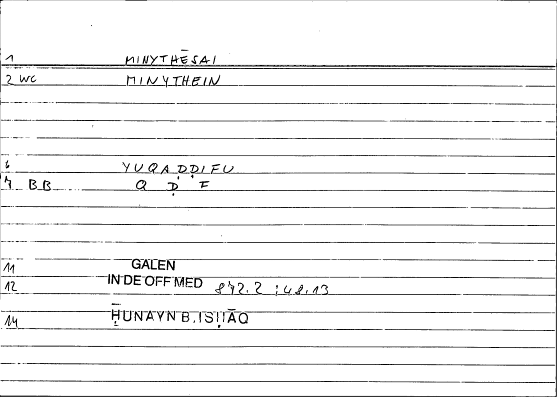 1 MINYTHĒSAI
2 WC MINYTHEIN
6 YUQAḌḌIFU
7 BB Q Ḍ F
11 GALEN
12 IN DE OFF MED 872.2 ; 48.13
14 ḤUNAYN B. ISḤĀQ